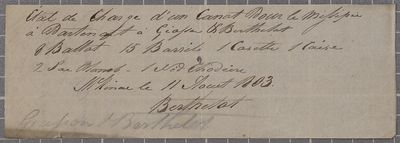 Etat de Charge d'un Canot Pour le Missipie
à Giason & Berthelot
8 Ballot 15 Barrils 1 Casette 1 Caisse
2 Sac
McKinac le 11 Aout 1803.
Berthelot
Giasson & Berthelot